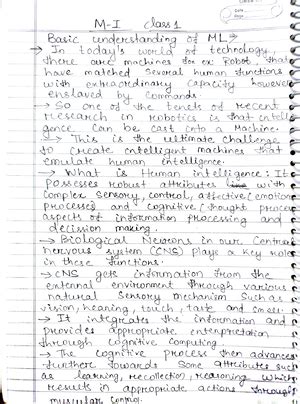 M-I class 1
Basic understanding of ML →
→ In today's world of technology,
there are machines for ex Robot, that
have matched several human functions
with extraordinary capacity however
enslaved by commands.
→ So one of the tenets of recent
research in robotics is that intelli
gence can be cast into a Machine.
→ This is the ultimate challenge
to create intelligent machines that
emulate human intelligence.
→ What is Human intelligence: It
possesses robust attributes with
complex sensory, control, affective (emotion
processes) and cognitive (thought process
aspects of information processing and
decision making.
→ Biological Neurons in our Central
nervous system (CNS) plays a key role
in these functions
→ CNS gets information from the
external environment through various
natural sensory mechanism such as
vision, hearing, touch, taste and smell.
→ It integrates the information and
provides appropriate interpretation
through cognitive computing.
→ The cognitive process then advances
further towards some attributes such
as learning, recollection, reasoning which
results in appropriate actions through
muscular control.